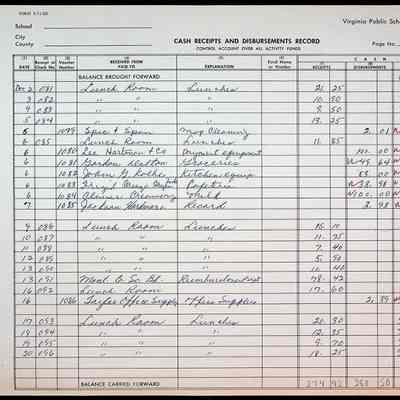 FORM
School
Virginia Public Sch
City
County
CASH RECEIPTS AND DISBURSEMENTS RECORD
CONTROL ACCOUNT OVER ALL ACTIVITY FUNDS
Page No.
(1) (2) (3) (4) (5) (6) CASH
DATE Receipt or Check No. Voucher Number RECEIVED FROM PAID TO EXPLANATION Fund Name or Number RECEIPTS DISBURSEMENTS
BALANCE BROUGHT FORWARD
Dec 2 081 Lunch Room Lunches 21 25
3 082 " " " 10 50
4 083 " " " 9 50
5 084 " " " 13 25
5 1079 Spic & Span Mop Cleaning 2 01
6 085 Lunch Room Lunches 11 85
6 1080 Lee Hartman & Co Payment equipment 00
6 1081 Gordon Groceries 49 64
6 1082 John G. Kitchen equip 53 00
6 1083 Cafeteria 38 98
6 1084 Creamery Milk 00
7 1085 Record 3 98
9 086 Lunch Room Lunches 15 10
10 087 " " " 11 75
11 088 " " " 7 40
12 089 " " " 5 90
13 090 " " " 11 40
13 091 Mont. Co Sc. Bd. Reimbursement 78 42
16 092 Lunch Room 17 60
16 1086 Office Supply Office Supplies 2 39
17 093 Lunch Room Lunches 20 30
18 094 " " " 12 35
19 095 " " " 9 70
20 096 " " " 18 25
BALANCE CARRIED FORWARD 274 92 350 50